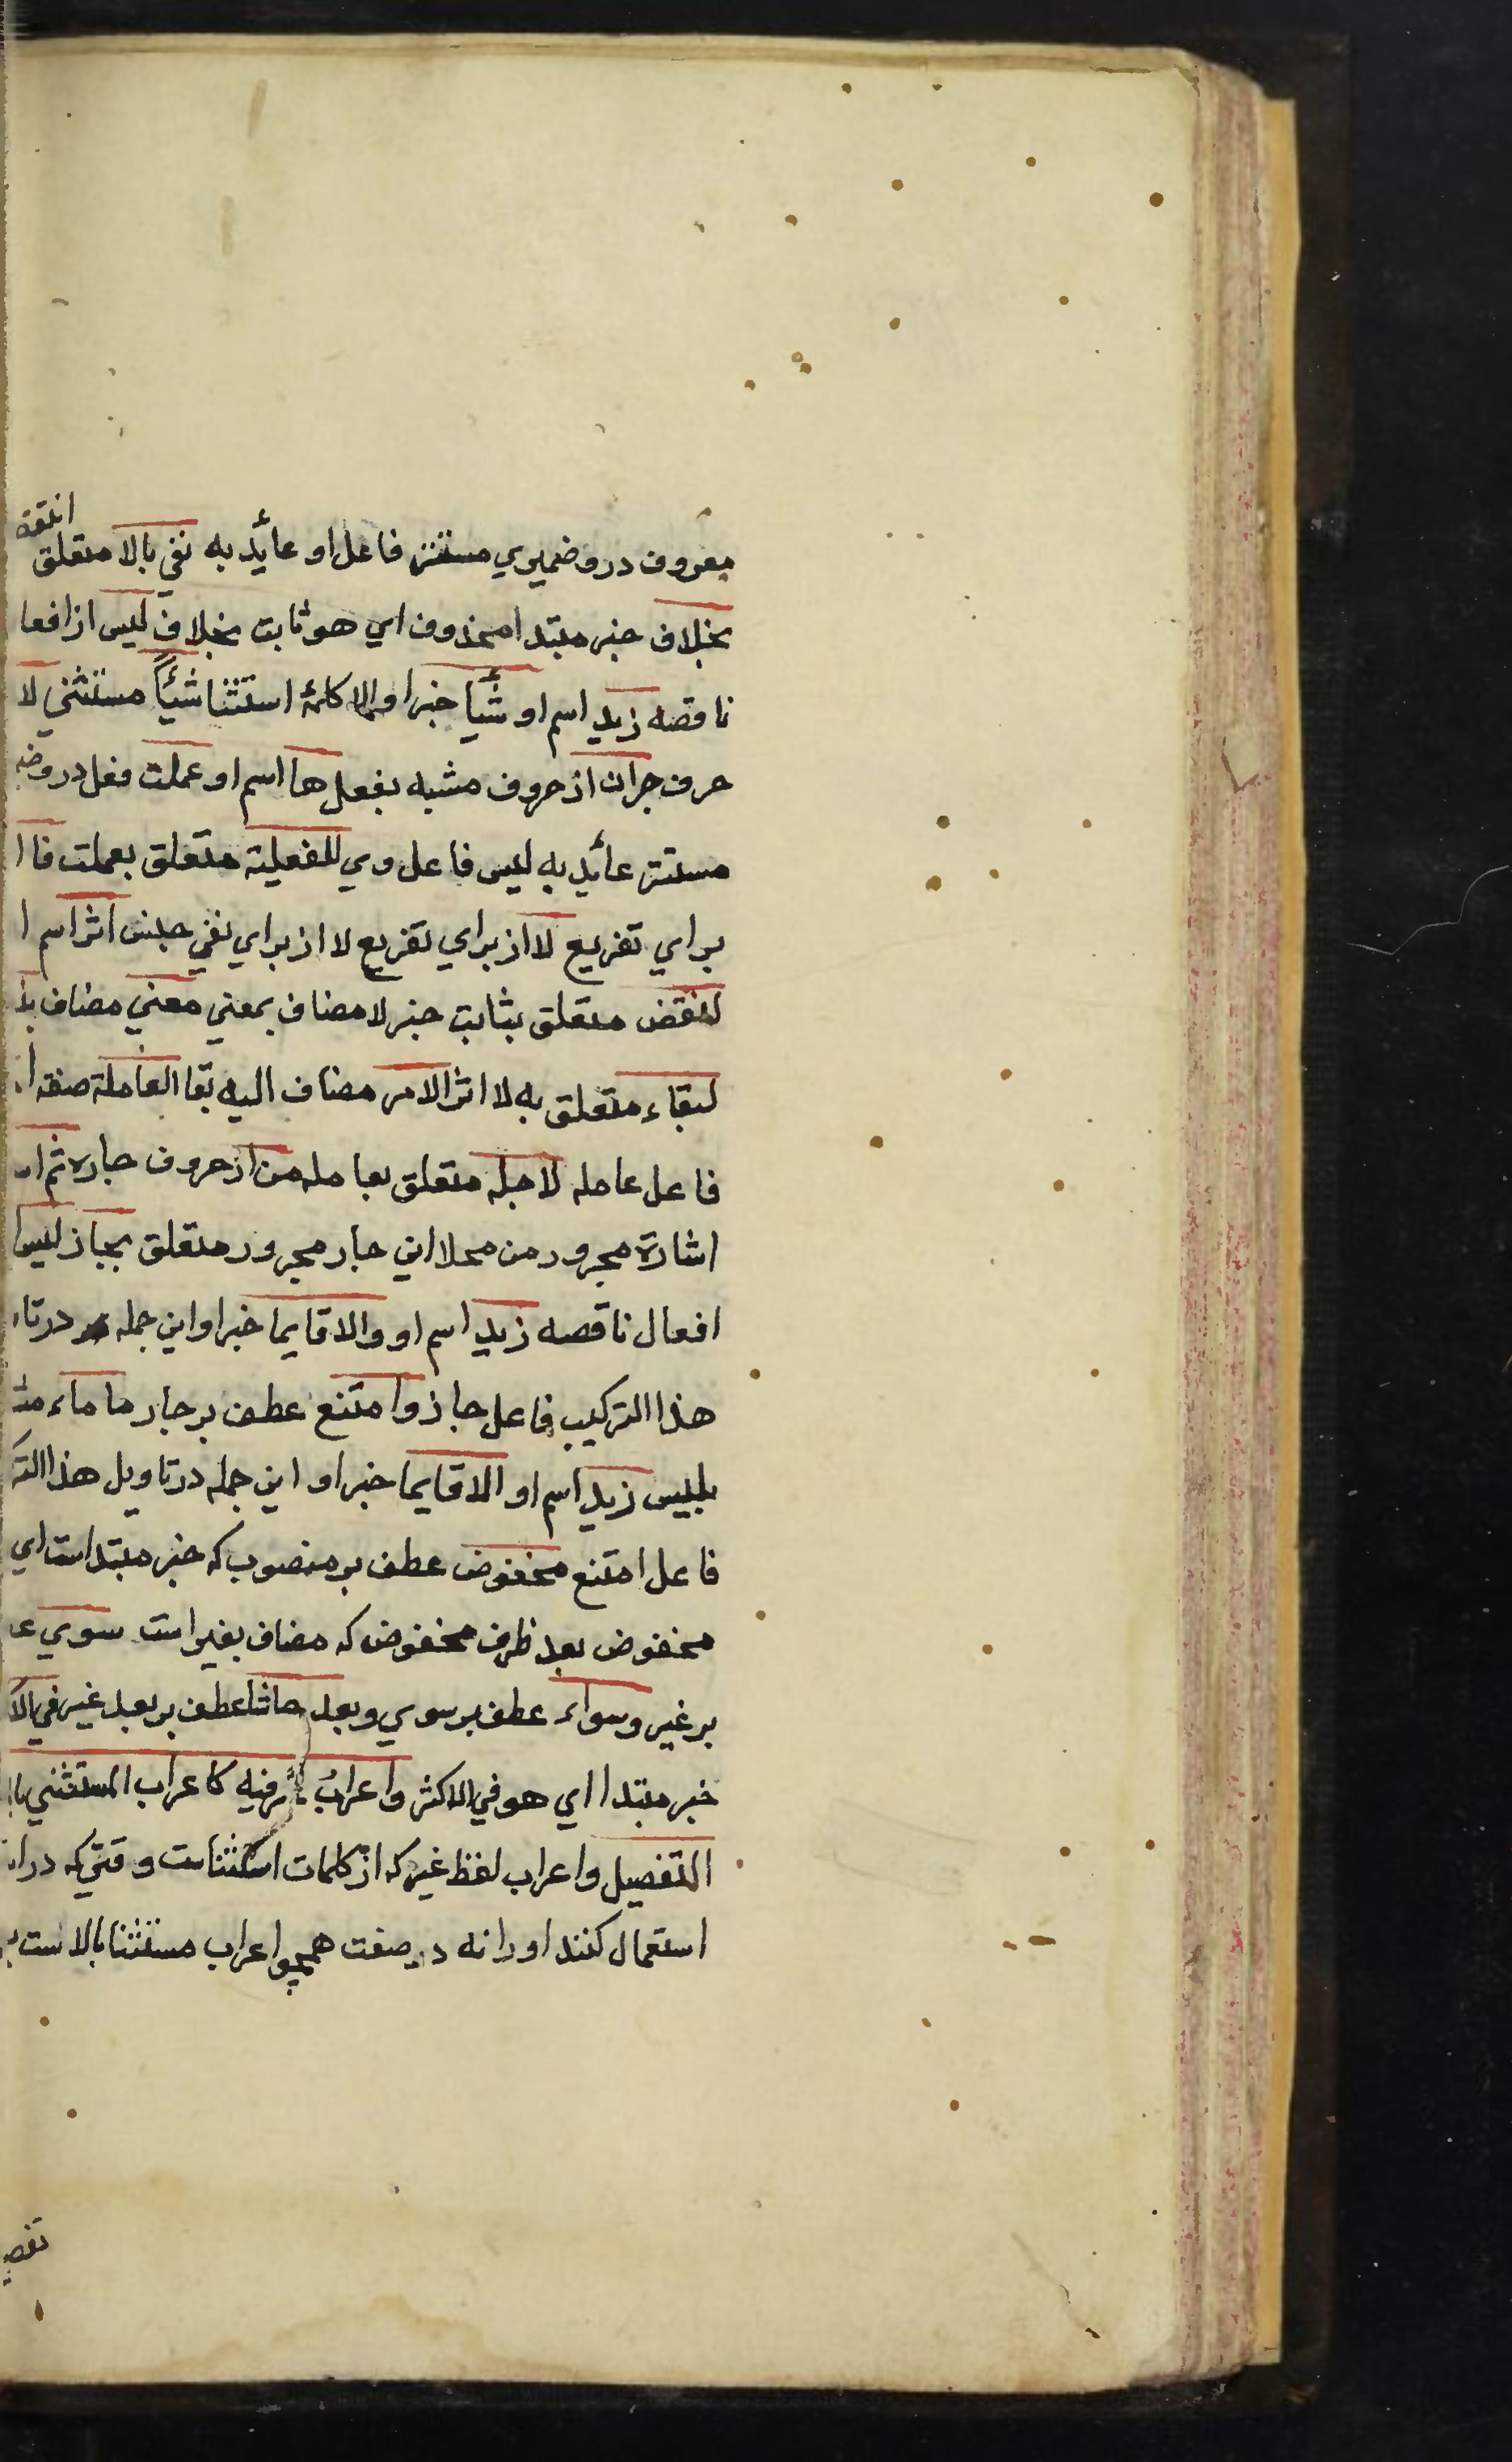 انتقض
معروف درو ضميري مستتر فاعل او عائد به نفي بالا متعلق
بخلاف خبر مبتدا محذوف اي هو ثابت بخلاف ليس از افعا
ناقصه زيد اسم او شيأ خبر او الا كلمۀ استثنا شيأً مستثني لا
حرف جر ان از حروف مشبه بفعل ها اسم او عملت فعل درو ضمـ
مستتر عائد به ليس فاعل وي للفعلية متعلق بعملت فا ا
براي تفريع لا از براي تفريع لا از براي نفي جنس اثر اسم ا
لنقض متعلق بثابت خبر لا مضاف بمعني معني مضاف بد
لبقاء متعلق به لا اثر الامر مضاف اليه بقا العاملة صفه ا
فاعل عامله لاجله متعلق بعامله من از حروف جاره ثم ا
اشارة مجرور من محلا اين جار مجرور متعلق بجاز ليس ا
افعال ناقصه زيد اسم او والا قايما خبر او اين جمله در تا
هذا التركيب فاعل جاز وامتنع عطف بر جاز ما ماء
بليس زيد اسم او الا قايما خبر او اين جمله در تاويل هذا التر
فاعل امتنع مخفوض عطف بر منصوب كه خبر مبتدا است اي
مخفوض بعد ظرف مخفوض كه مضاف بغير است سوي ع
بر غير وسواء عطف بر سوي وبعد حاشا عطف بر بعد غير في الا
خبر مبتدا اي هو في الاكثر واعراب غير فيه كاعراب المستثني با
التفصيل واعراب لفظ غير كه از كلمات استثناست وقتي كه درا
استعمال كنند او را نه در صفت همچو اعراب مستثنا بالا است
تفصـ